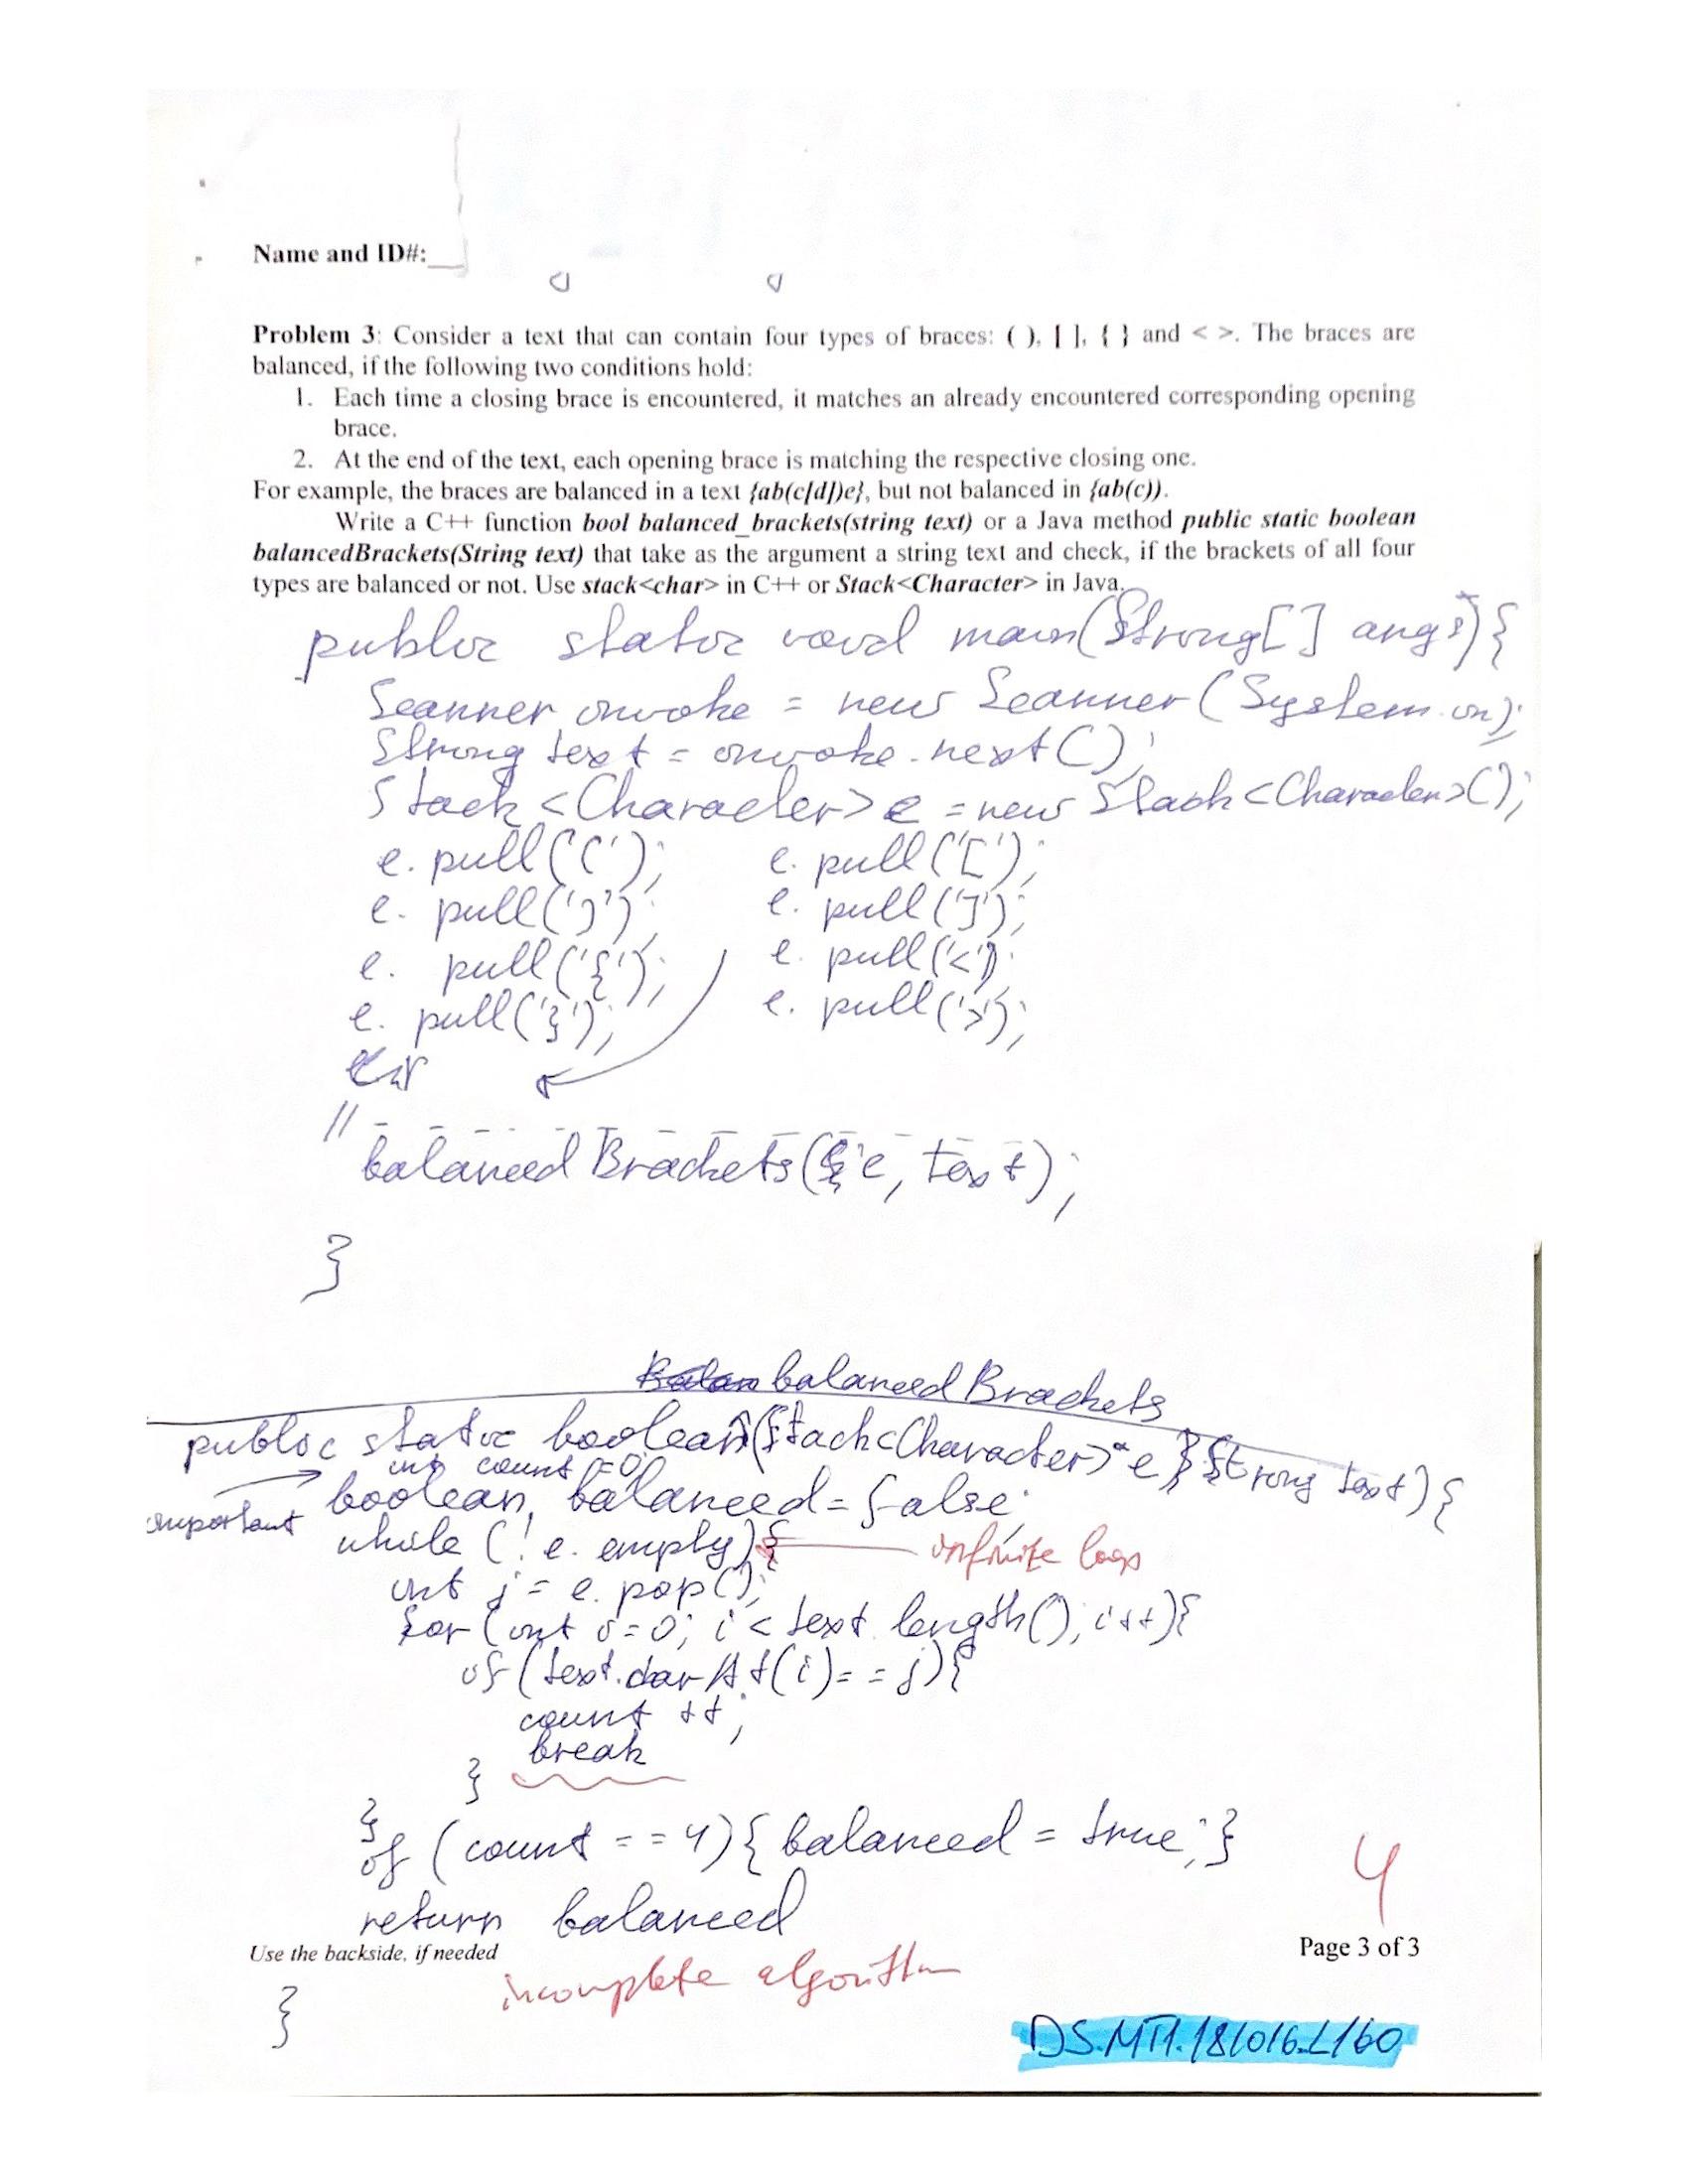 Name and ID#:
Problem 3: Consider a text that can contain four types of braces: ( ), [ ], { } and < >. The braces are
balanced, if the following two conditions hold:
1. Each time a closing brace is encountered, it matches an already encountered corresponding opening
brace.
2. At the end of the text, each opening brace is matching the respective closing one.
For example, the braces are balanced in a text {ab(c[d])e}, but not balanced in {ab(c)).
Write a C++ function bool balanced_brackets(string text) or a Java method public static boolean
balancedBrackets(String text) that take as the argument a string text and check, if the brackets of all four
types are balanced or not. Use stack<char> in C++ or Stack<Character> in Java.
public static void main(String[] args){
Scanner invoke = new Scanner(System.in);
String text = invoke.next();
Stack<Character> e = new Stack<Character>();
e. pull('('); e. pull('[');
e. pull(')'); e. pull(']');
e. pull('{'); e. pull('<');
e. pull('}'); e. pull('>');
//
balancedBrackets(e, text);
}
balancedBrackets
public static boolean(Stack<Character>* e, String text){
int count = 0;
important boolean balanced = false;
while (!e.empty){ infinite loop
int j = e.pop();
for (int i=0; i < text.length(); i++){
if (text.charAt(i)==j){
count ++;
break
}
}
if (count == 4){ balanced = true;}
return balanced
4
Use the backside, if needed
Page 3 of 3
incomplete algorithm
}
DS.MT1.181016.L160